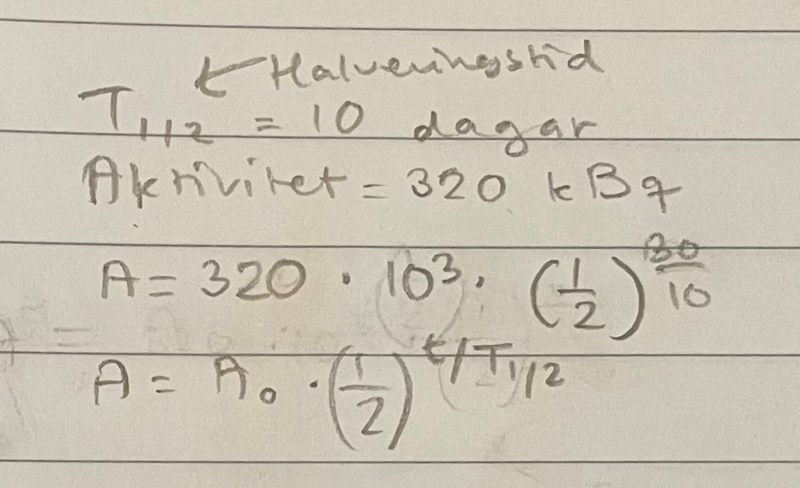 ← Halveringstid
T1/2 = 10 dagar
Aktivitet = 320 kBq
A = 320 · 10³ · (1/2)^30/10
A = A₀ · (1/2)^t/T1/2